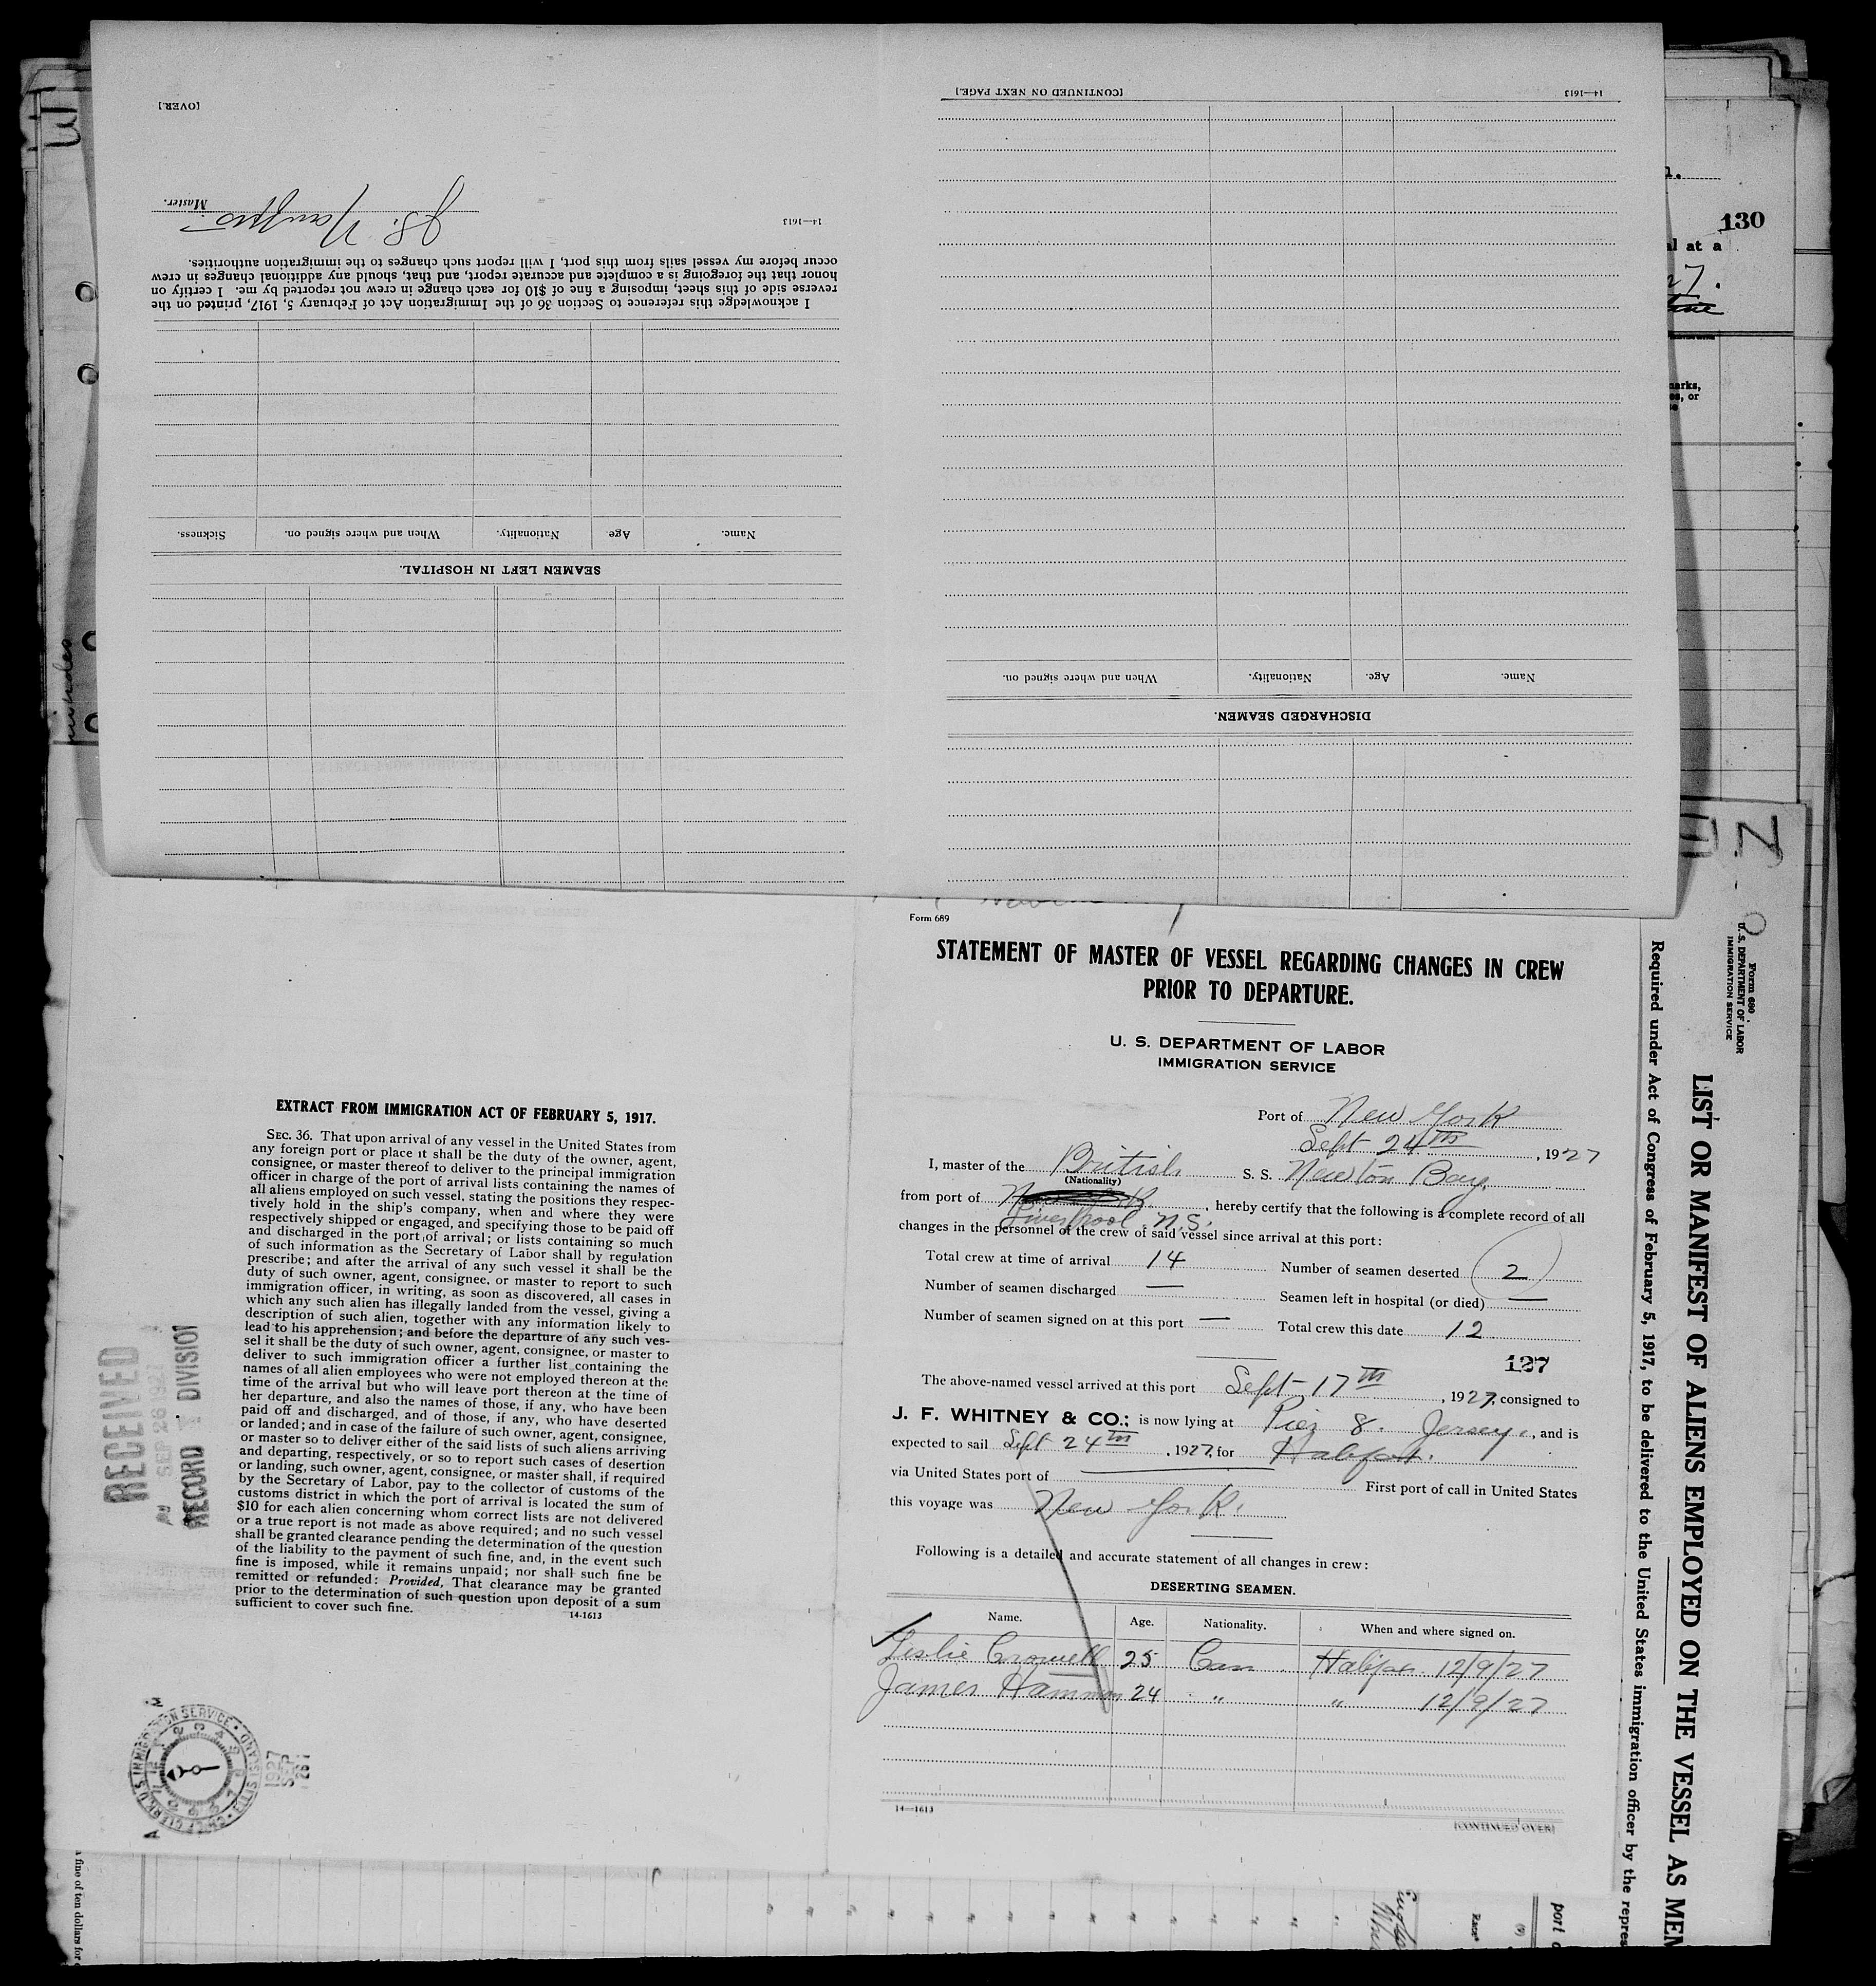 [OVER.]
Master.
14—1613
I acknowledge this reference to Section 36 of the Immigration Act of February 5, 1917, printed on the
reverse side of this sheet, imposing a fine of $10 for each change in crew not reported by me. I certify on
honor that the foregoing is a complete and accurate report, and that, should any additional changes in crew
occur before my vessel sails from this port, I will report such changes to the immigration authorities.
SEAMEN LEFT IN HOSPITAL.
Name. Age. Nationality. When and where signed on. Sickness.
DISCHARGED SEAMEN.
Name. Age. Nationality. When and where signed on.
14—1613 [CONTINUED ON NEXT PAGE.]
130
al at a
27.
marks,
es, or
EXTRACT FROM IMMIGRATION ACT OF FEBRUARY 5, 1917.
SEC. 36. That upon arrival of any vessel in the United States from
any foreign port or place it shall be the duty of the owner, agent,
consignee, or master thereof to deliver to the principal immigration
officer in charge of the port of arrival lists containing the names of
all aliens employed on such vessel, stating the positions they respec-
tively hold in the ship's company, when and where they were
respectively shipped or engaged, and specifying those to be paid off
and discharged in the port of arrival; or lists containing so much
of such information as the Secretary of Labor shall by regulation
prescribe; and after the arrival of any such vessel it shall be the
duty of such owner, agent, consignee, or master to report to such
immigration officer, in writing, as soon as discovered, all cases in
which any such alien has illegally landed from the vessel, giving a
description of such alien, together with any information likely to
lead to his apprehension; and before the departure of any such ves-
sel it shall be the duty of such owner, agent, consignee, or master to
deliver to such immigration officer a further list containing the
names of all alien employees who were not employed thereon at the
time of the arrival but who will leave port thereon at the time of
her departure, and also the names of those, if any, who have been
paid off and discharged, and of those, if any, who have deserted
or landed; and in case of the failure of such owner, agent, consignee,
or master so to deliver either of the said lists of such aliens arriving
and departing, respectively, or so to report such cases of desertion
or landing, such owner, agent, consignee, or master shall, if required
by the Secretary of Labor, pay to the collector of customs of the
customs district in which the port of arrival is located the sum of
$10 for each alien concerning whom correct lists are not delivered
or a true report is not made as above required; and no such vessel
shall be granted clearance pending the determination of the question
of the liability to the payment of such fine, and, in the event such
fine is imposed, while it remains unpaid; nor shall such fine be
remitted or refunded: Provided, That clearance may be granted
prior to the determination of such question upon deposit of a sum
sufficient to cover such fine.
14-1613
RECEIVED
SEP 26 1927
RECORD DIVISION
1927
SEP
26
Form 689
STATEMENT OF MASTER OF VESSEL REGARDING CHANGES IN CREW
PRIOR TO DEPARTURE.
U. S. DEPARTMENT OF LABOR
IMMIGRATION SERVICE
Port of New York
Sept 24th, 1927
I, master of the British S. S. Newton Bay,
(Nationality)
from port of Liverpool. N.S., hereby certify that the following is a complete record of all
changes in the personnel of the crew of said vessel since arrival at this port:
Total crew at time of arrival 14 Number of seamen deserted 2
Number of seamen discharged — Seamen left in hospital (or died) —
Number of seamen signed on at this port — Total crew this date 12
127
The above-named vessel arrived at this port Sept 17th, 1927, consigned to
J. F. WHITNEY & CO.; is now lying at Pier 8. Jersey., and is
expected to sail Sept 24th, 1927, for Halifax.
via United States port of — First port of call in United States
this voyage was New York.
Following is a detailed and accurate statement of all changes in crew:
DESERTING SEAMEN.
Name. Age. Nationality. When and where signed on.
Leslie Crowell 25 Can Halifax 12/9/27
James Hammon 24 " " 12/9/27
14—1613
[CONTINUED OVER]
Form 680
U. S. DEPARTMENT OF LABOR
IMMIGRATION SERVICE
LIST OR MANIFEST OF ALIENS EMPLOYED ON THE VESSEL AS MEM
Required under Act of Congress of February 5, 1917, to be delivered to the United States immigration officer by the repres
a fine of ten dollars for
Race
port